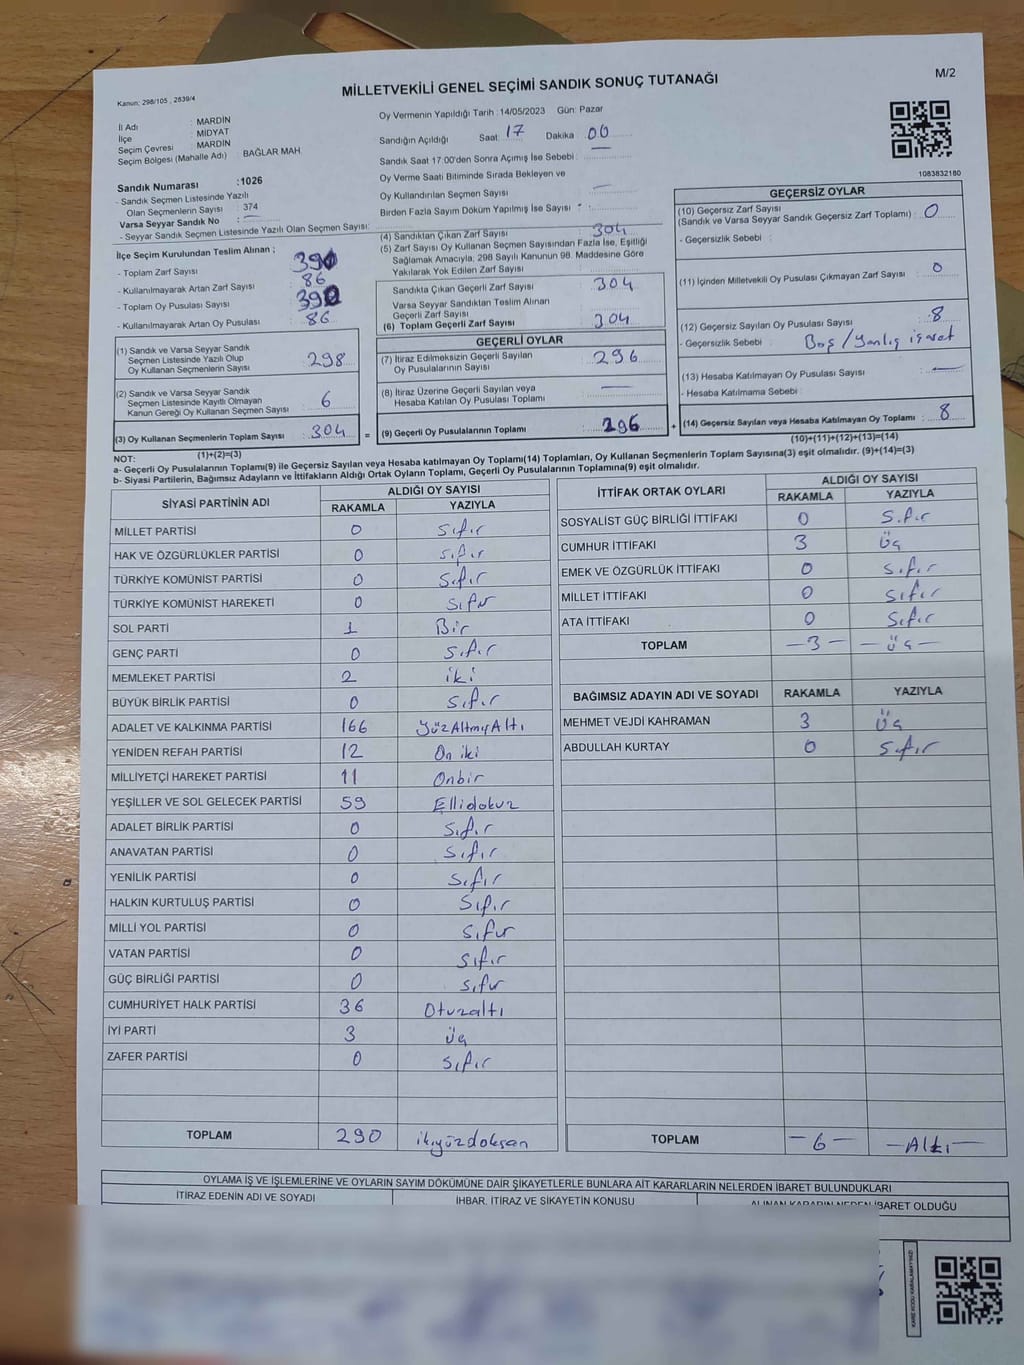 M/2
Kanun: 298/105 , 2839/4
MİLLETVEKİLİ GENEL SEÇİMİ SANDIK SONUÇ TUTANAĞI
İl Adı : MARDİN
İlçe : MİDYAT
Seçim Çevresi : MARDİN
Seçim Bölgesi (Mahalle Adı) BAĞLAR MAH.
Sandık Numarası :1026
- Sandık Seçmen Listesinde Yazılı
Olan Seçmenlerin Sayısı : 374
Varsa Seyyar Sandık No :
- Seyyar Sandık Seçmen Listesinde Yazılı Olan Seçmen Sayısı:
Oy Vermenin Yapıldığı Tarih : 14/05/2023 Gün: Pazar
Sandığın Açıldığı Saat: 17 Dakika 00
Sandık Saat 17:00'den Sonra Açımış İse Sebebi : —
Oy Verme Saati Bitiminde Sırada Bekleyen ve
Oy Kullandırılan Seçmen Sayısı : —
Birden Fazla Sayım Döküm Yapılmış İse Sayısı :
1083832180
İlçe Seçim Kurulundan Teslim Alınan ;
- Toplam Zarf Sayısı : 390
- Kullanılmayarak Artan Zarf Sayısı : 86
- Toplam Oy Pusulası Sayısı : 390
- Kullanılmayarak Artan Oy Pusulası : 86
(1) Sandık ve Varsa Seyyar Sandık
Seçmen Listesinde Yazılı Olup
Oy Kullanan Seçmenlerin Sayısı : 298
(2) Sandık ve Varsa Seyyar Sandık
Seçmen Listesinde Kayıtlı Olmayan
Kanun Gereği Oy Kullanan Seçmen Sayısı : 6
(3) Oy Kullanan Seçmenlerin Toplam Sayısı : 304
(1)+(2)=(3)
(4) Sandıktan Çıkan Zarf Sayısı : 304
(5) Zarf Sayısı Oy Kullanan Seçmen Sayısından Fazla İse, Eşitliği
Sağlamak Amacıyla, 298 Sayılı Kanunun 98. Maddesine Göre
Yakılarak Yok Edilen Zarf Sayısı :
Sandıkta Çıkan Geçerli Zarf Sayısı : 304
Varsa Seyyar Sandıktan Teslim Alınan
Geçerli Zarf Sayısı :
(6) Toplam Geçerli Zarf Sayısı : 304
GEÇERLİ OYLAR
(7) İtiraz Edilmeksizin Geçerli Sayılan
Oy Pusulalarının Sayısı : 296
(8) İtiraz Üzerine Geçerli Sayılan veya
Hesaba Katılan Oy Pusulası Toplamı : —
= (9) Geçerli Oy Pusulalarının Toplamı : 296
GEÇERSİZ OYLAR
(10) Geçersiz Zarf Sayısı
(Sandık ve Varsa Seyyar Sandık Geçersiz Zarf Toplamı) : 0
- Geçersizlik Sebebi :
(11) İçinden Milletvekili Oy Pusulası Çıkmayan Zarf Sayısı : 0
(12) Geçersiz Sayılan Oy Pusulası Sayısı : 8
- Geçersizlik Sebebi : Boş/Yanlış işaret
(13) Hesaba Katılmayan Oy Pusulası Sayısı : —
- Hesaba Katılmama Sebebi :
+ (14) Geçersiz Sayılan veya Hesaba Katılmayan Oy Toplamı : 8
(10)+(11)+(12)+(13)=(14)
NOT:
a- Geçerli Oy Pusulalarının Toplamı(9) ile Geçersiz Sayılan veya Hesaba katılmayan Oy Toplamı(14) Toplamları, Oy Kullanan Seçmenlerin Toplam Sayısına(3) eşit olmalıdır. (9)+(14)=(3)
b- Siyasi Partilerin, Bağımsız Adayların ve İttifakların Aldığı Ortak Oyların Toplamı, Geçerli Oy Pusulalarının Toplamına(9) eşit olmalıdır.
SİYASİ PARTİNİN ADI ALDIĞI OY SAYISI
RAKAMLA YAZIYLA
MİLLET PARTİSİ 0 Sıfır
HAK VE ÖZGÜRLÜKLER PARTİSİ 0 Sıfır
TÜRKİYE KOMÜNİST PARTİSİ 0 Sıfır
TÜRKİYE KOMÜNİST HAREKETİ 0 Sıfır
SOL PARTİ 1 Bir
GENÇ PARTİ 0 Sıfır
MEMLEKET PARTİSİ 2 iki
BÜYÜK BİRLİK PARTİSİ 0 Sıfır
ADALET VE KALKINMA PARTİSİ 166 YüzAltmışAltı
YENİDEN REFAH PARTİSİ 12 On iki
MİLLİYETÇİ HAREKET PARTİSİ 11 Onbir
YEŞİLLER VE SOL GELECEK PARTİSİ 59 Ellidokuz
ADALET BİRLİK PARTİSİ 0 Sıfır
ANAVATAN PARTİSİ 0 Sıfır
YENİLİK PARTİSİ 0 Sıfır
HALKIN KURTULUŞ PARTİSİ 0 Sıfır
MİLLİ YOL PARTİSİ 0 Sıfır
VATAN PARTİSİ 0 Sıfır
GÜÇ BİRLİĞİ PARTİSİ 0 Sıfır
CUMHURİYET HALK PARTİSİ 36 Otuzaltı
İYİ PARTİ 3 üç
ZAFER PARTİSİ 0 Sıfır
TOPLAM 290 ikiyüzdoksan
İTTİFAK ORTAK OYLARI ALDIĞI OY SAYISI
RAKAMLA YAZIYLA
SOSYALİST GÜÇ BİRLİĞİ İTTİFAKI 0 Sıfır
CUMHUR İTTİFAKI 3 Üç
EMEK VE ÖZGÜRLÜK İTTİFAKI 0 Sıfır
MİLLET İTTİFAKI 0 Sıfır
ATA İTTİFAKI 0 Sıfır
TOPLAM —3— —üç—
BAĞIMSIZ ADAYIN ADI VE SOYADI RAKAMLA YAZIYLA
MEHMET VEJDİ KAHRAMAN 3 Üç
ABDULLAH KURTAY 0 Sıfır
TOPLAM —6— —Altı—
OYLAMA İŞ VE İŞLEMLERİNE VE OYLARIN SAYIM DÖKÜMÜNE DAİR ŞİKAYETLERLE BUNLARA AİT KARARLARIN NELERDEN İBARET BULUNDUKLARI
İTİRAZ EDENİN ADI VE SOYADI İHBAR, İTİRAZ VE SİKAYETİN KONUSU ALINAN KARARIN NEDEN İBARET OLDUĞU
KARE KODU KARALAMAYINIZ!